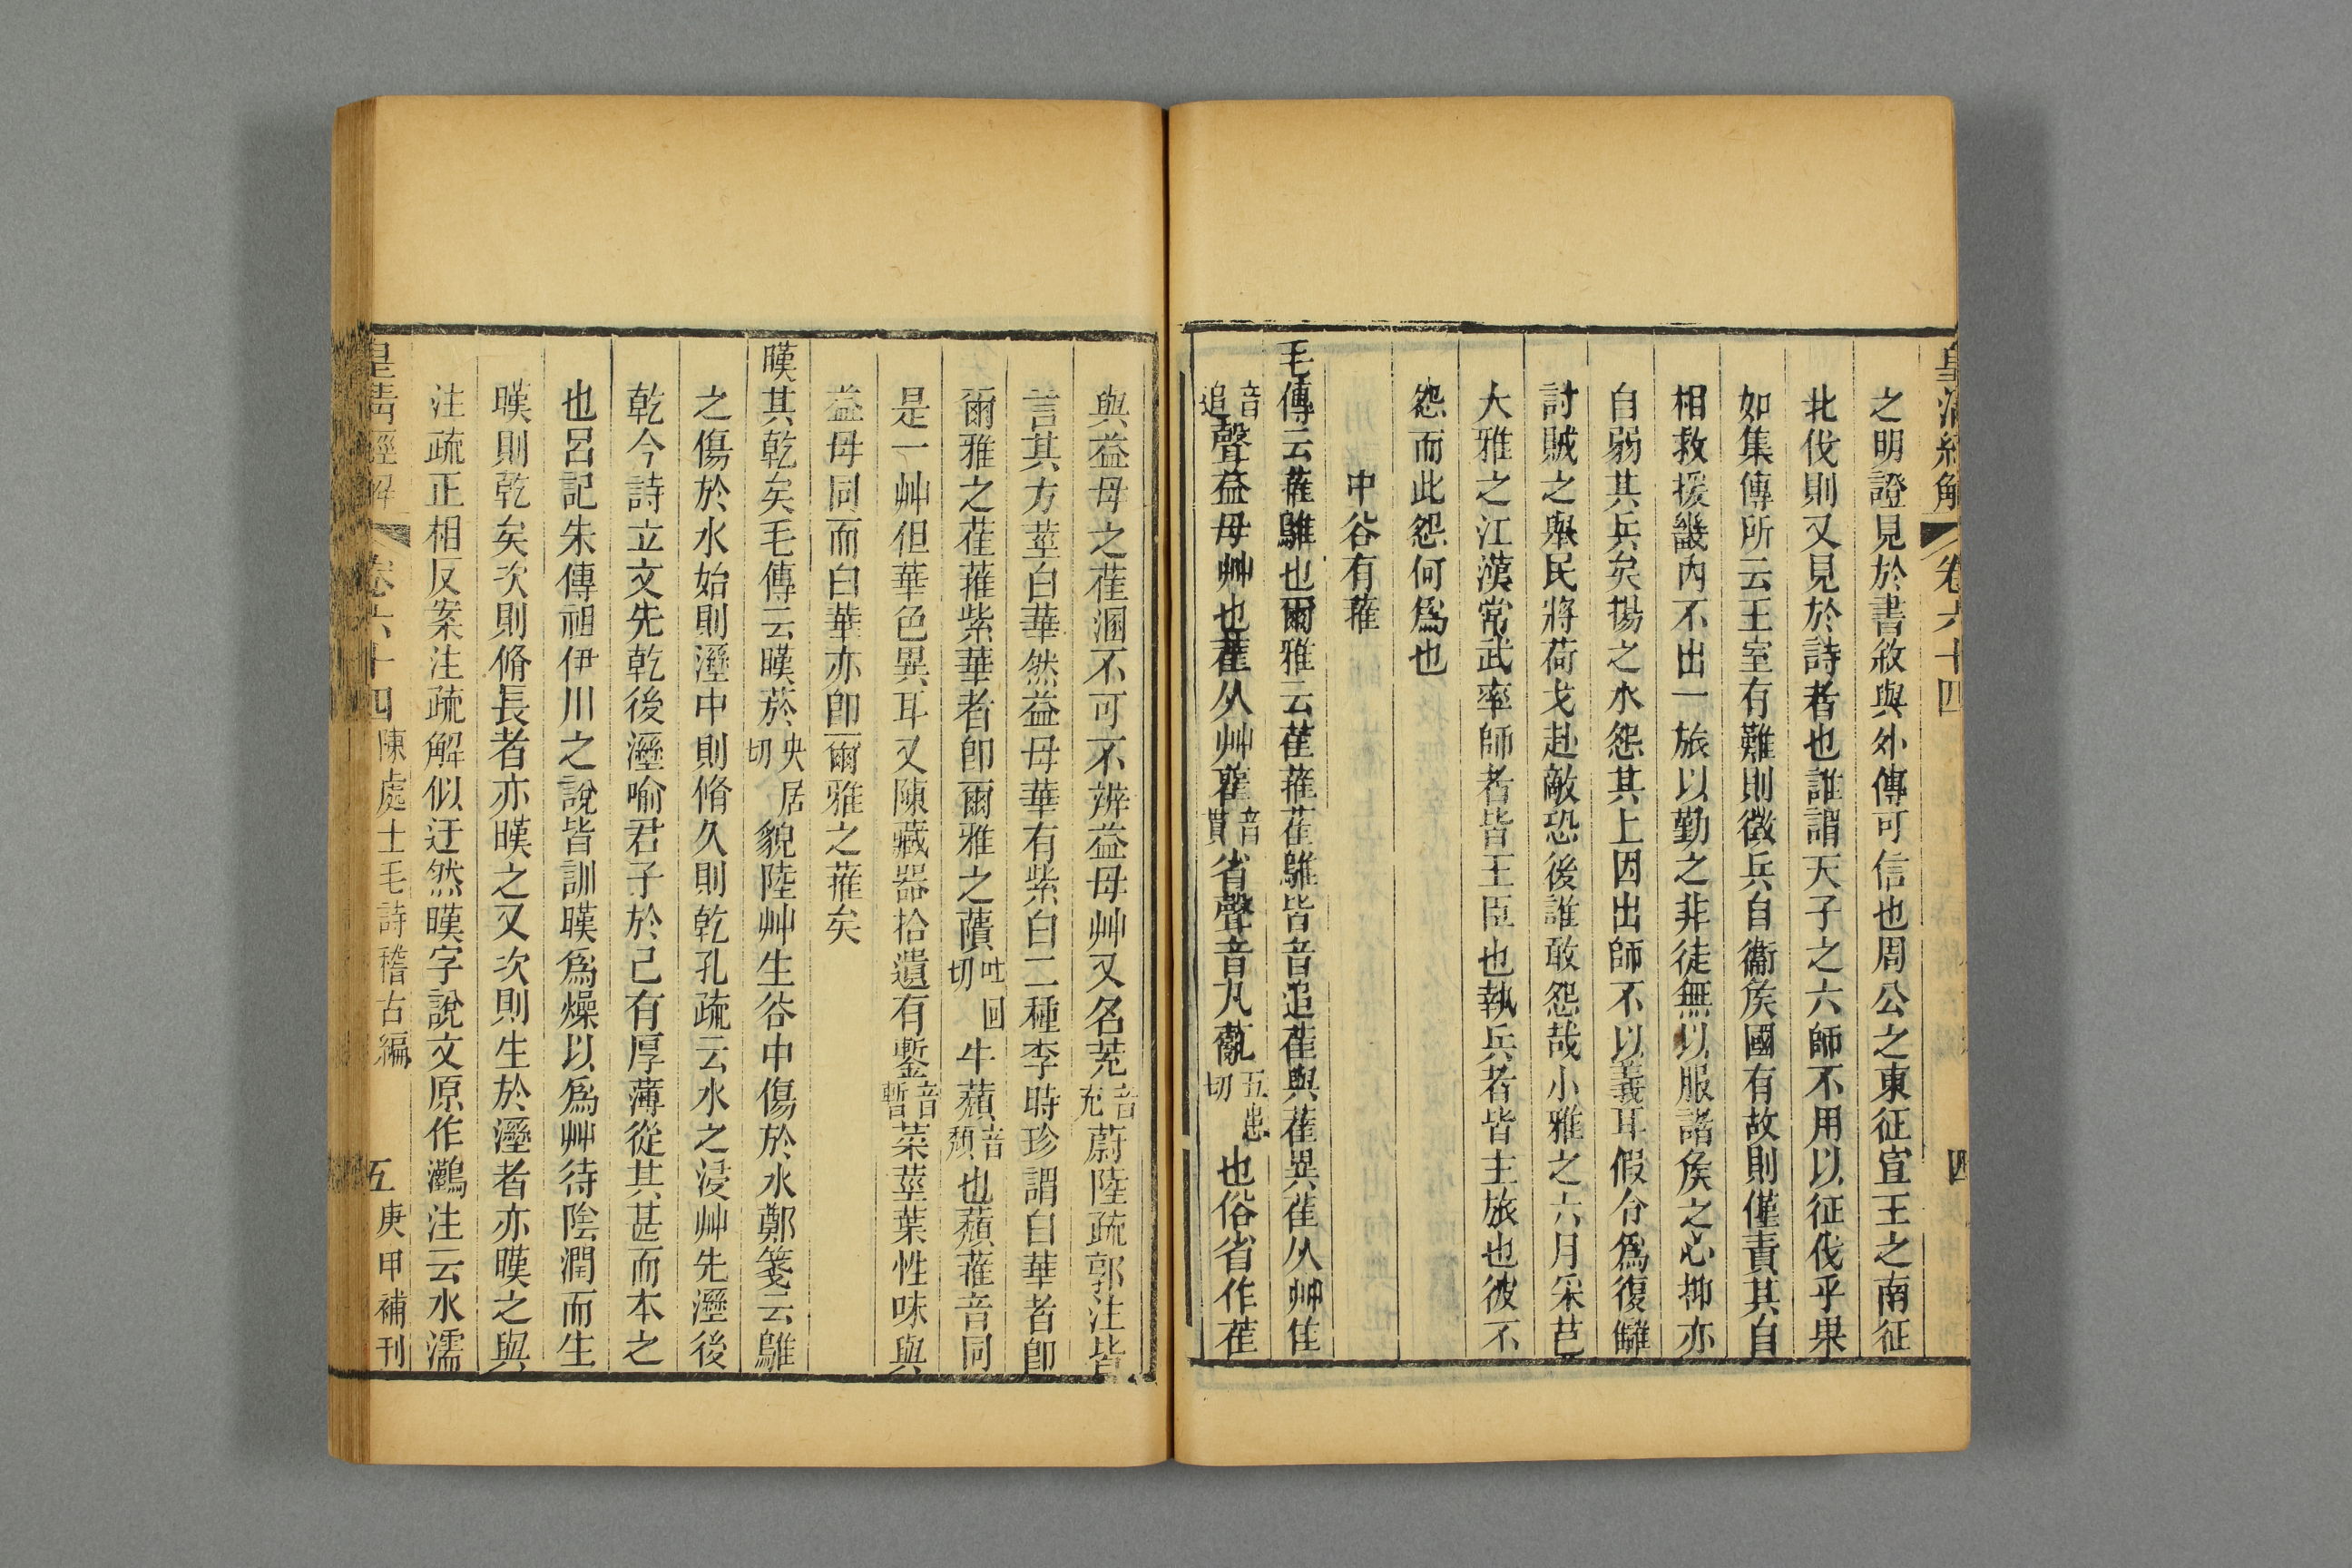 皇清經解 卷六十四 四
之明證見於書敘與外傳可信也周公之東征宣王之南征
北伐則又見於詩者也誰謂天子之六師不用以征伐乎果
如集傳所云王室有難則徵兵自衞矦國有故則僅責其自
相救援畿內不出一旅以勤之非徒無以服諸矦之心抑亦
自弱其兵矣揚之水怨其上因出師不以義耳假令爲復讎
討賊之舉民將荷戈赴敵恐後誰敢怨哉小雅之六月采芑
大雅之江漢常武率師者皆王臣也執兵者皆王旅也彼不
怨而此怨何爲也
中谷有蓷
毛傳云蓷鵻也爾雅云萑蓷萑鵻皆音追萑與雈異萑从艸隹
音追聲益母艸也雚从艸雚音貫省聲音凡薍五患切也俗省作萑
與益母之萑溷不可不辨益母艸又名茺音充蔚陸疏郭注皆
言其方莖白華然益母華有紫白二種李時珍謂白華者卽
爾雅之萑蓷紫華者卽爾雅之藬吐回切牛蘈音頹也蘈蓷音同
是一艸但華色異耳又陳藏器拾遺有鏨音暫菜莖葉性味與
益母同而白華亦卽爾雅之蓷矣
暵其乾矣毛傳云暵菸央居切貌陸艸生谷中傷於水鄭箋云鵻
之傷於水始則溼中則脩久則乾孔疏云水之浸艸先溼後
乾今詩立文先乾後溼喻君子於己有厚薄從其甚而本之
也呂記朱傳祖伊川之說皆訓暵爲燥以爲艸待陰潤而生
暵則乾矣次則脩長者亦暵之又次則生於溼者亦暵之與
注疏正相反案注疏解似迂然暵字說文原作灘注云水濡
皇清經解 卷六十四 陳處士毛詩稽古編 五 庚申補刊